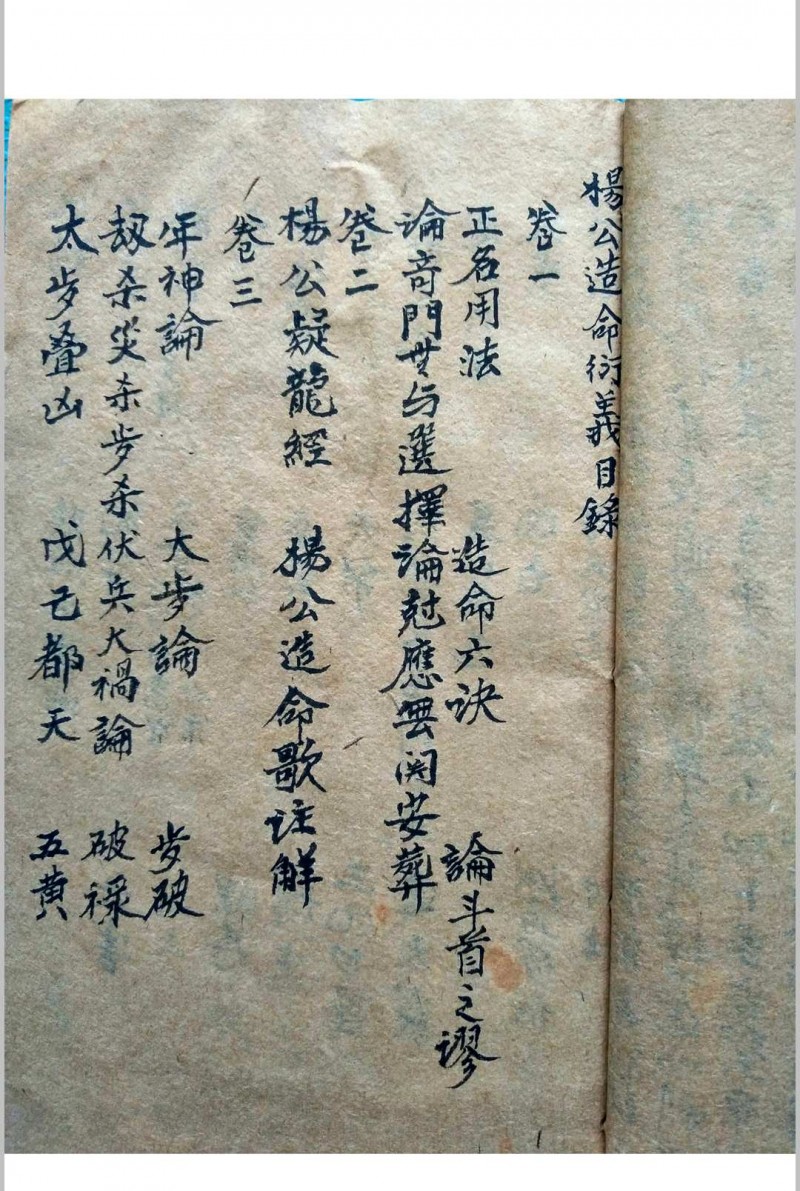 楊公造命衍義目錄
卷一
正名用法 造命六诀 論斗首之謬
論奇門無与選擇論尅應無関安葬
卷二
楊公疑龍經 楊公造命歌註解
卷三
年神論 大歩論 歩破
劫杀災杀歩杀伏兵大禍論 破禄
太歩叠凶 戊己都天 五黄